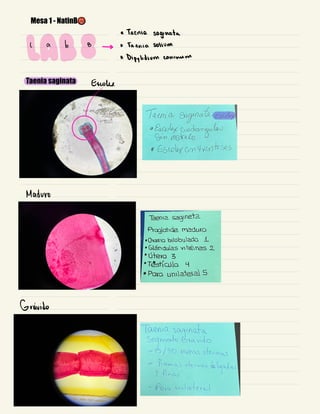 Mesa 1 - NatinB
LAB 8
l a b 8
• Taenia saginata
• Taenia solium
• Dipylidium caninum
Taenia saginata
Escolex
Taenia Saginata
• Escolex Cuadrangular
Sin rostelo
• Escolex con 4 ventosas
Maduro
Taenia saginata
Proglotide maduro
• Ovario bilobulado 1
• Glándulas vitelinas 2
• Útero 3
• Testículo 4
• Poro unilateral 5
Grávido
Taenia saginata
Segmento Grávido
- 15/30 ramas uterinas
- Ramas uterinas delgadas
- Poro unilateral